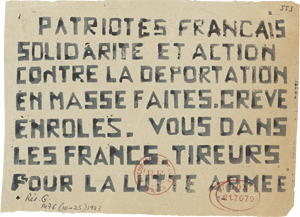 553
PATRIOTES FRANCAIS
SOLIDARITE ET ACTION
CONTRE LA DEPORTATION
EN MASSE FAITES. CREVE
ENROLES. VOUS DANS
LES FRANCS. TIREURS
POUR LA LUTTE ARMEE
Rés. G